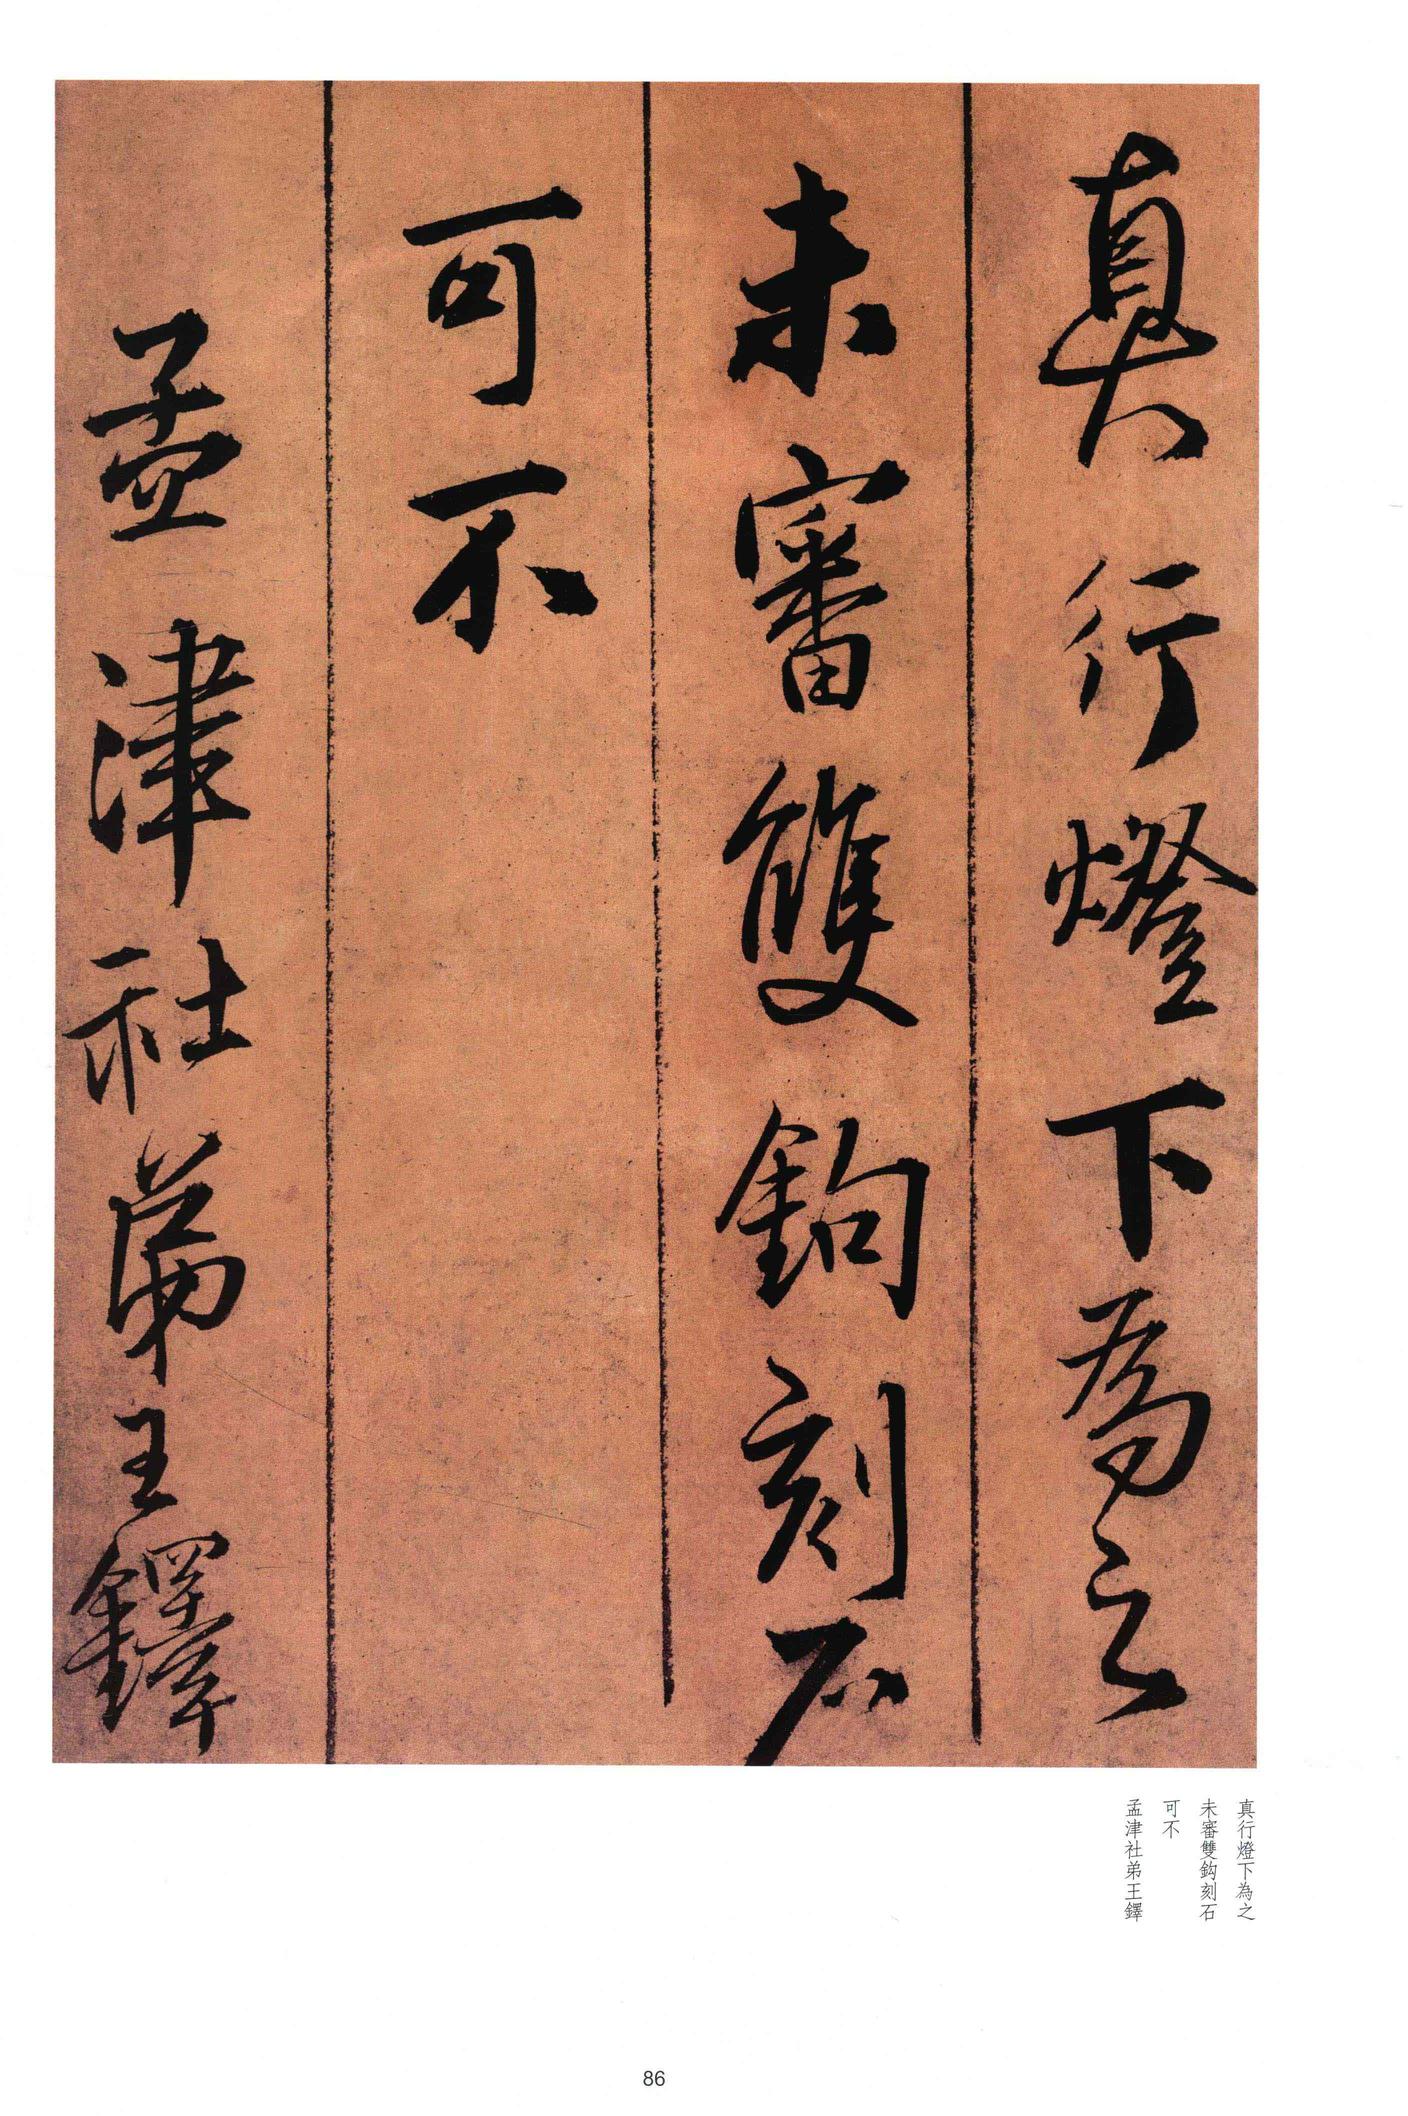 真行燈下為之
未審雙鈎刻石
可不
孟津社弟王鐸
真行燈下為之
未審雙鈎刻石
可不
孟津社弟王鐸
86